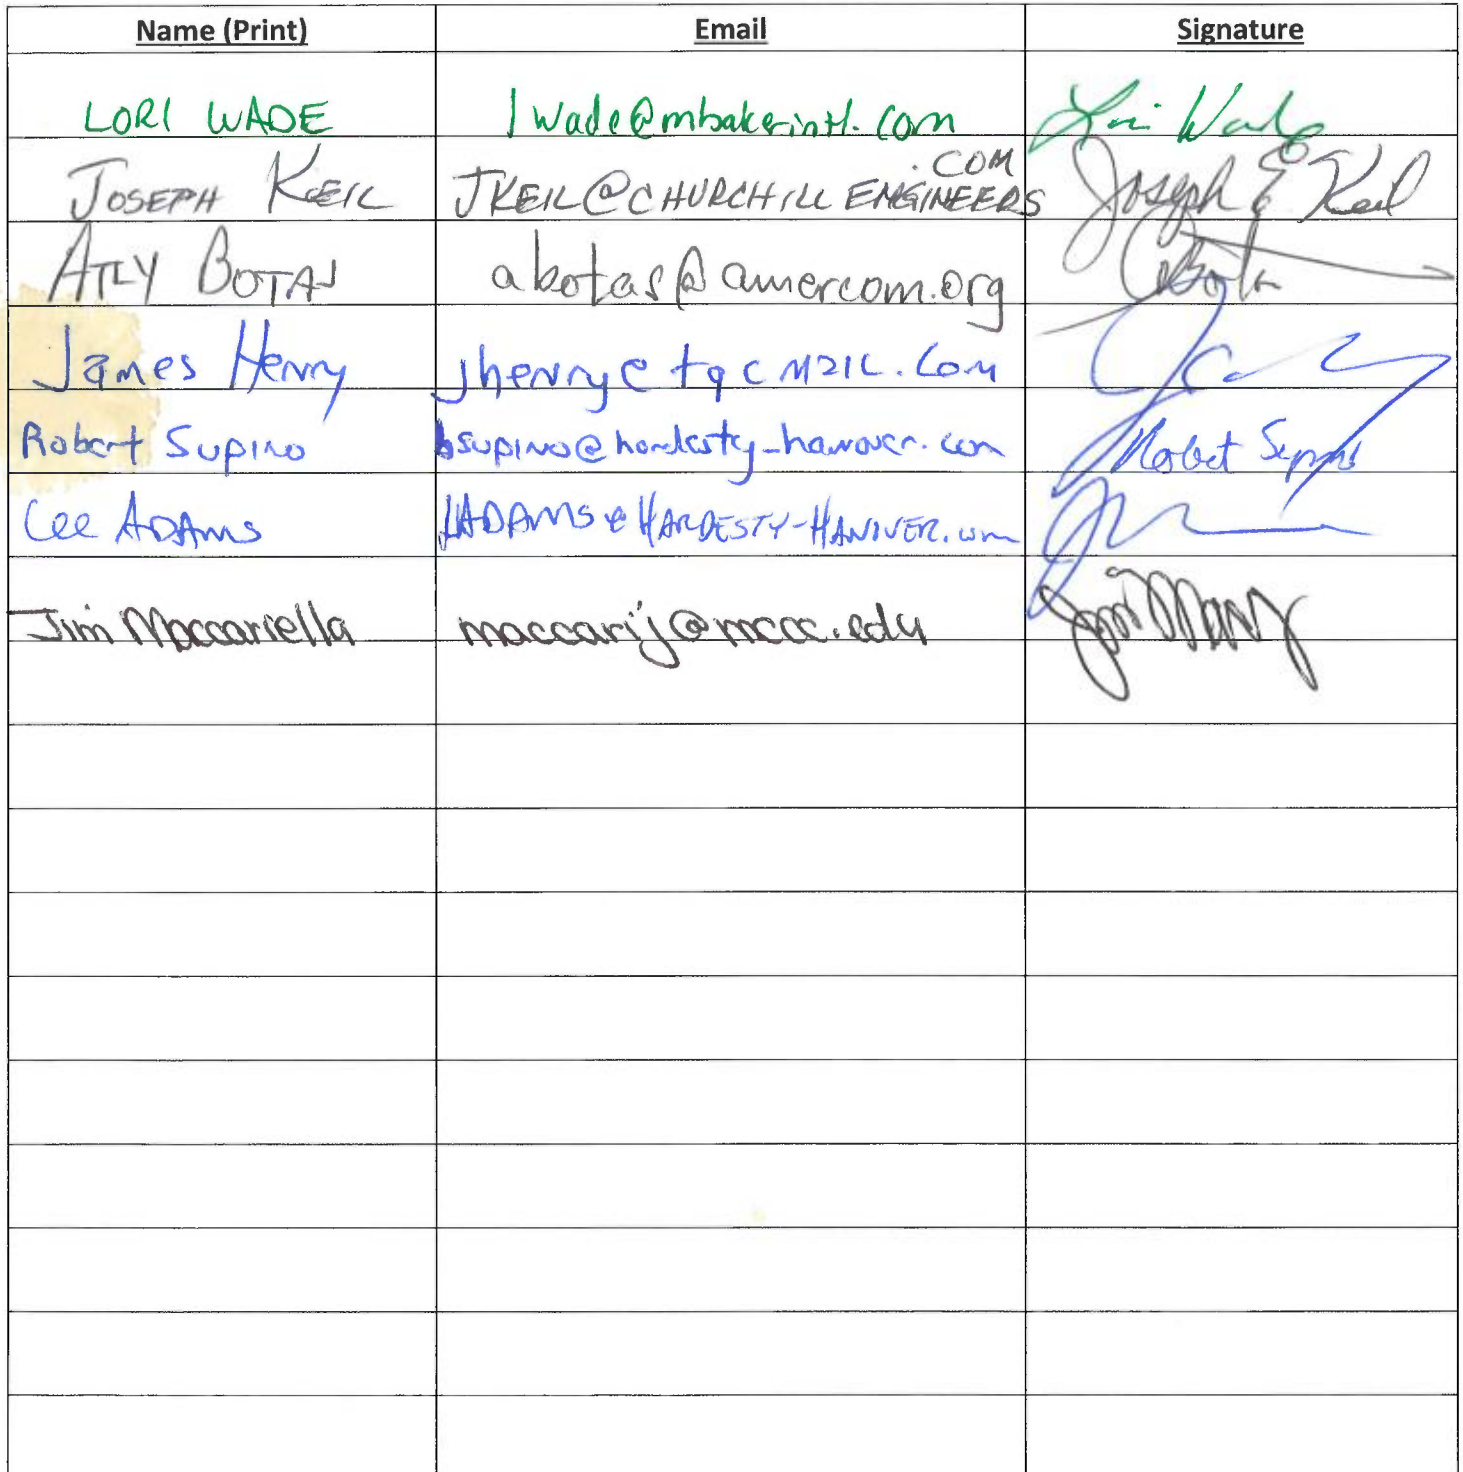 Name (Print) Email Signature
LORI WADE lwade@mbakerintl.com Lori Wade
.COM
JOSEPH KEIL JKEIL@CHURCHILL ENGINEERS Joseph E Keil
ATLY BOTAS abotas@amercom.org
James Henry jhenry@tqcmail.com
Robert Supino bsupino@hardesty-hanover.com Robert Supino
Lee ADAMS LADAMS@HARDESTY-HANOVER.com
Jim Maccariella maccarij@mccc.edu